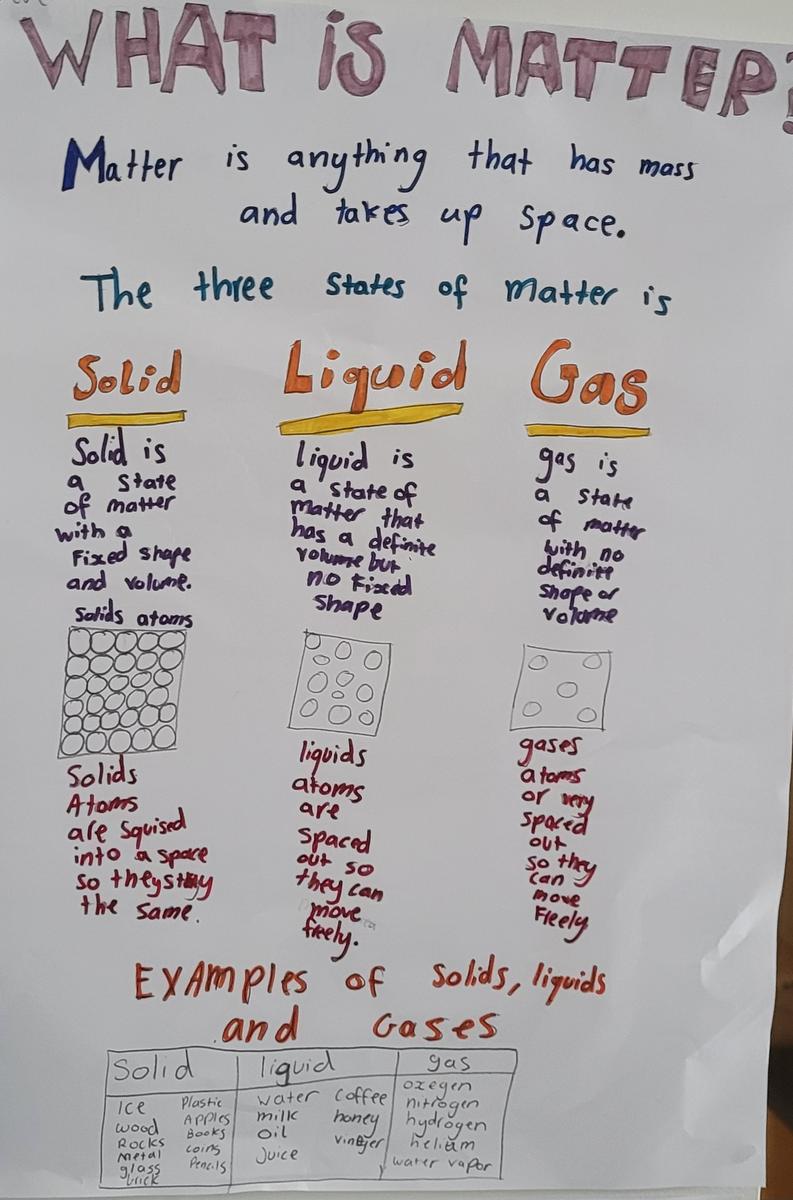 WHAT iS MATTER?
Matter is anything that has mass
and takes up space.
The three states of matter is
Solid
Solid is
a state
of matter
with a
Fixed shape
and volume.
Solids atoms
Solids
Atoms
are squised
into a space
so they stay
the same.
Liquid
liquid is
a state of
matter that
has a definite
volume but
no fixed
shape
liquids
atoms
are
spaced
out so
they can
move
freely.
Gas
gas is
a state
of matter
with no
definite
shape or
volume
gases
atoms
or very
spaced
out
so they
can
move
Freely
EXAMPles of solids, liquids
and Gases
Solid
Ice
wood
Rocks
metal
glass
brick
Plastic
APPles
Books
coins
Pencils
liquid
water
milk
oil
Juice
coffee
honey
vinejer
gas
oxegen
nitrogen
hydrogen
helium
water vapor